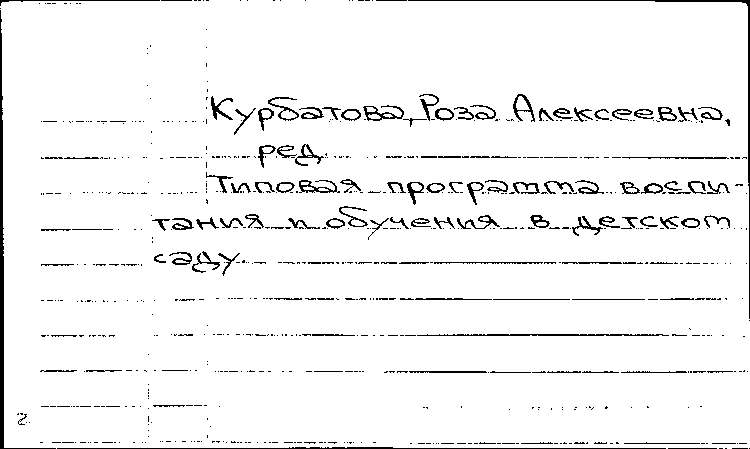 Курбатова, Роза Алексеевна,
ред.
Типовая программа воспи-
тания и обучения в детском
саду.
2